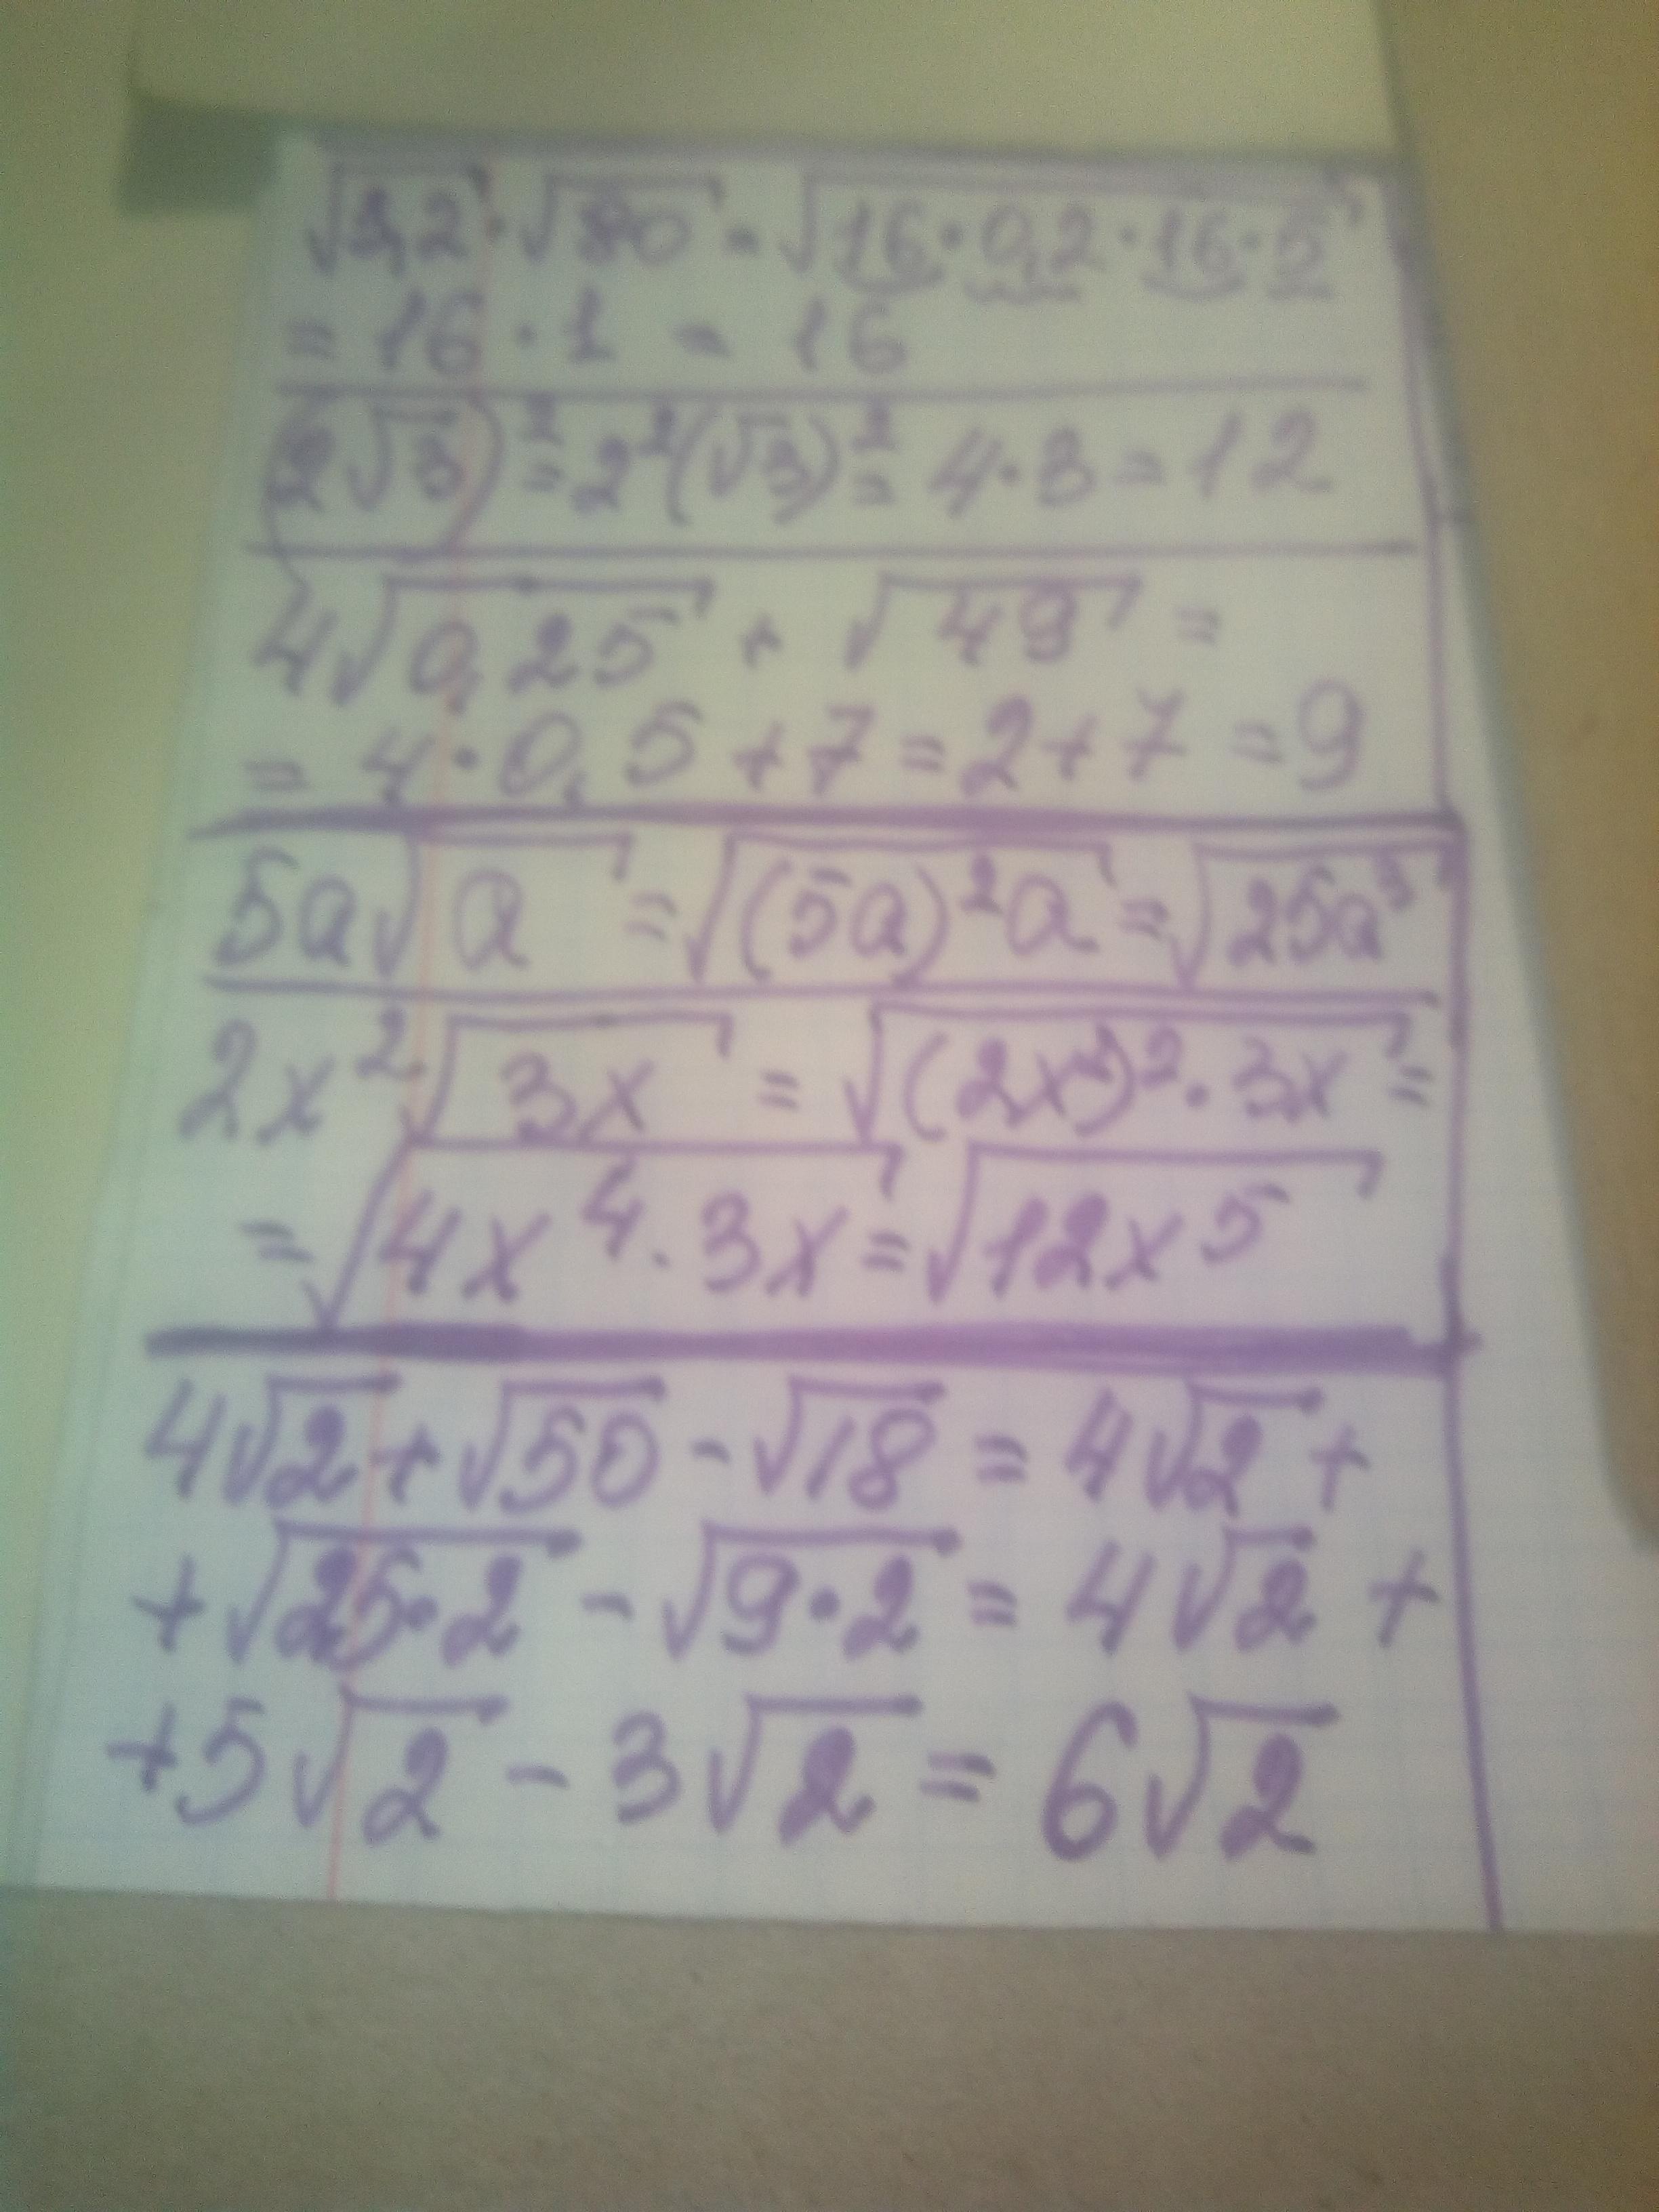 √3,2 · √80 = √16 · 0,2 · 16 · 5
= 16 · 1 = 16
(2√3)² = 2²(√3)² = 4 · 3 = 12
4√0,25 + √49 =
= 4 · 0,5 + 7 = 2 + 7 = 9
5a√a = √(5a)²a = √25a³
2x²√3x = √(2x²)² · 3x =
= √4x⁴ · 3x = √12x⁵
4√2 + √50 - √18 = 4√2 +
+ √25 · 2 - √9 · 2 = 4√2 +
+ 5√2 - 3√2 = 6√2